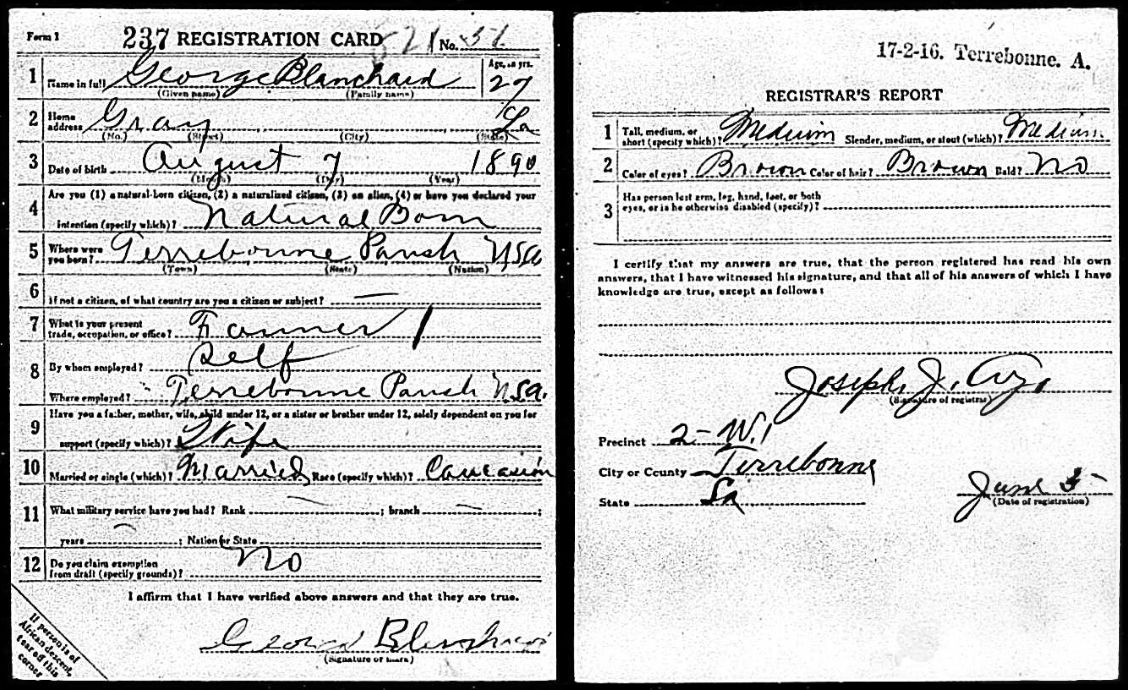 Form 1
237 REGISTRATION CARD 521 No. 51
1 Name in full George Blanchard Age, in yrs. 27
(Given name) (Family name)
2 Home address Gray La
(No.) (Street) (City) (State)
3 Date of birth August 7 1890
(Month) (Day) (Year)
4 Are you (1) a natural-born citizen, (2) a naturalized citizen, (3) an alien, (4) or have you declared your
intention (specify which)? Natural Born
5 Where were you born? Terrebonne Parish USA
(Town) (State) (Nation)
6 If not a citizen, of what country are you a citizen or subject? —
7 What is your present trade, occupation, or office? Farmer
8 By whom employed? Self
Where employed? Terrebonne Parish USA.
9 Have you a father, mother, wife, child under 12, or a sister or brother under 12, solely dependent on you for
support (specify which)? Wife
10 Married or single (which)? Married Race (specify which)? Caucasion
11 What military service have you had? Rank — ; branch — ;
years — ; Nation or State
12 Do you claim exemption from draft (specify grounds)? No
I affirm that I have verified above answers and that they are true.
George Blanchard
(Signature or mark)
If person is of
African descent,
tear off this
corner
17-2-16. Terrebonne. A.
REGISTRAR'S REPORT
1 Tall, medium, or short (specify which)? Medium Slender, medium, or stout (which)? Medium
2 Color of eyes? Brown Color of hair? Brown Bald? No
3 Has person lost arm, leg, hand, foot, or both
eyes, or is he otherwise disabled (specify)?
I certify that my answers are true, that the person registered has read his own
answers, that I have witnessed his signature, and that all of his answers of which I have
knowledge are true, except as follows:
Joseph J.
(Signature of registrar)
Precinct 2-W.1
City or County Terrebonne
State La
June 5
(Date of registration)